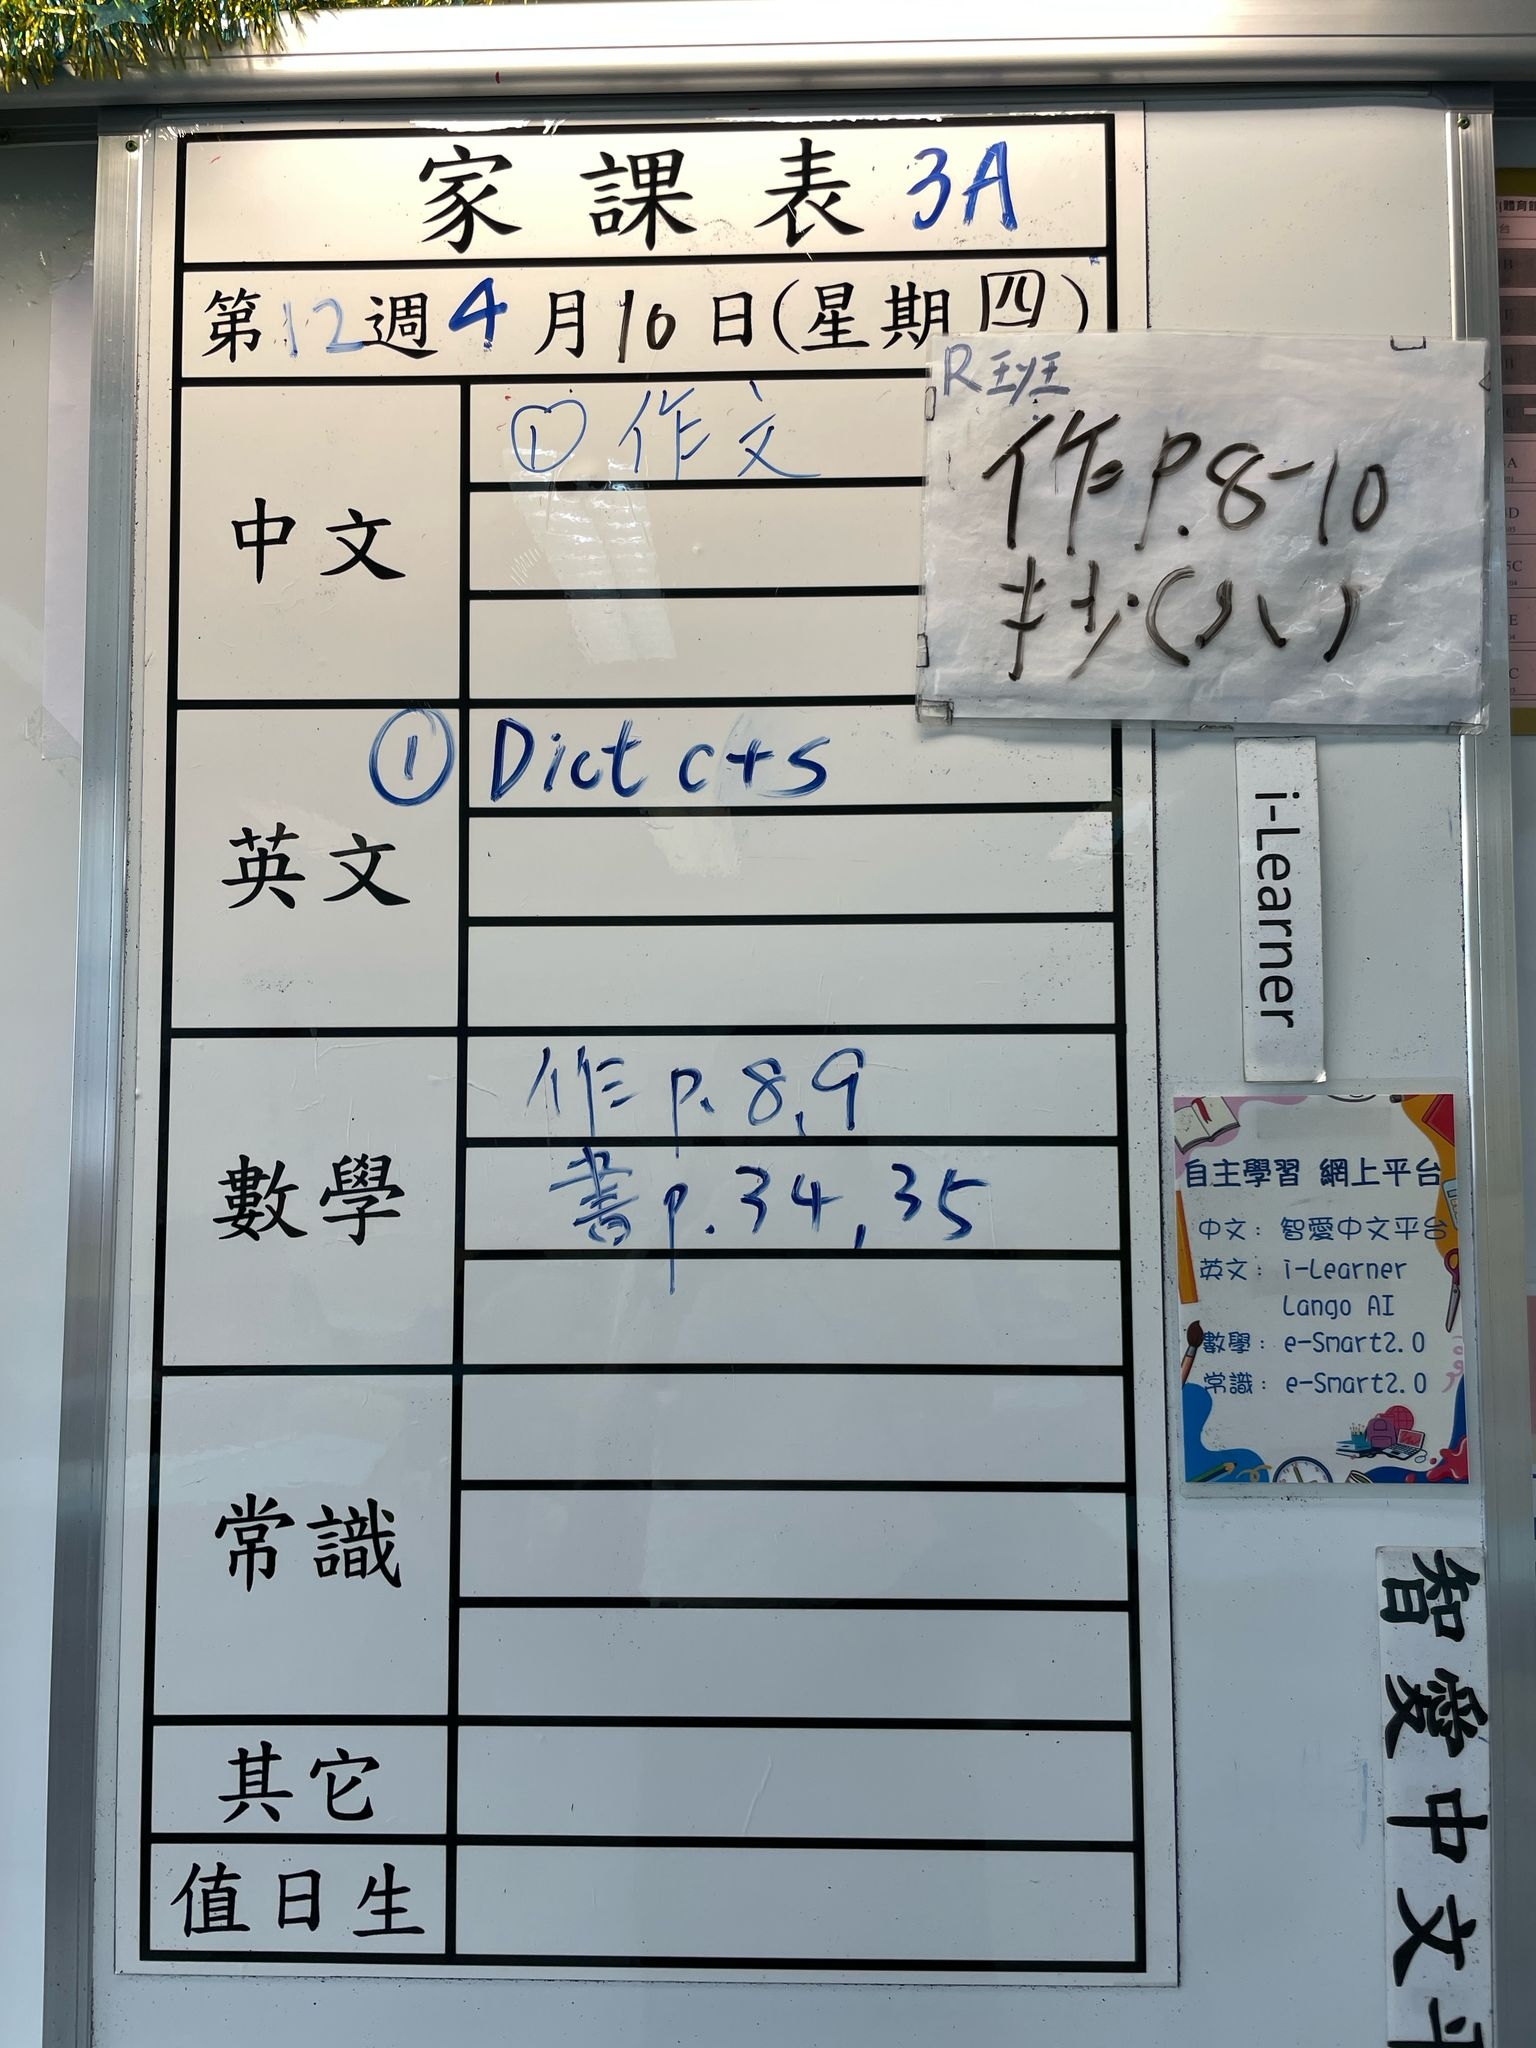 家課表 3A
第12週4月10日(星期四)
中文
① 作文
R班
作p.8-10
抄(八)
英文
① Dict c+s
數學
作 p. 8,9
書 p. 34, 35
常識
其它
值日生
i-Learner
自主學習 網上平台
中文: 智愛中文平台
英文: i-Learner
Lango AI
數學: e-Smart2.0
常識: e-Smart2.0
智愛中文平